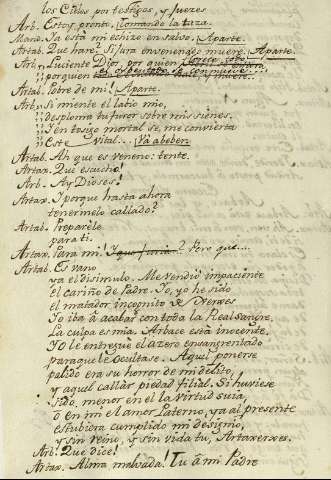 los Cielos por testigos, y juezes
Arb. Estoy pronto. Tomando la taza.
Man. Ya está mi echizo en salvo. Aparte.
Artab. Que haré? Si jura envenenado muere. Aparte.
Arb. Luciente Dios, por quien florece todo,
porquien
Artab. Pobre de mi! Aparte.
Arb. Si miente el labio mio,
desploma tu furor sobre mis sienes.
Y en tosigo mortal se me convierta
Este vital... Va a beber
Artab. Ah que es veneno: tente.
Artax. Que escucho!
Arb. Ay Dioses!
Artax. I porque hasta ahora
tenermelo callado?
Artab. Preparèle
para ti.
Artax. Para mi! Pero que....
Artab. Es vano
ya el disimulo. Me vendiò impaciente
el cariño de Padre. Yo, yo he sido
el matador incognito de Xerxes
Yo iba à acabar con toda la Real sangre,
La culpa es mia. Arbace està inocente.
Yo le entreguè el azero ensangrentado
paraque le ocultase. Aquel ponerse
palido era su horror de mi delito,
y aquel callàr piedad filial. Si huviese
sido menor en el la virtud suia,
ò en mi el amor Paterno, ya al presente
estubiera cumplido mi designio,
y sin reino, y sin vida tu, Artaxerxes.
Arb. Que dice!
Artax. Alma malvada! Tu à mi Padre